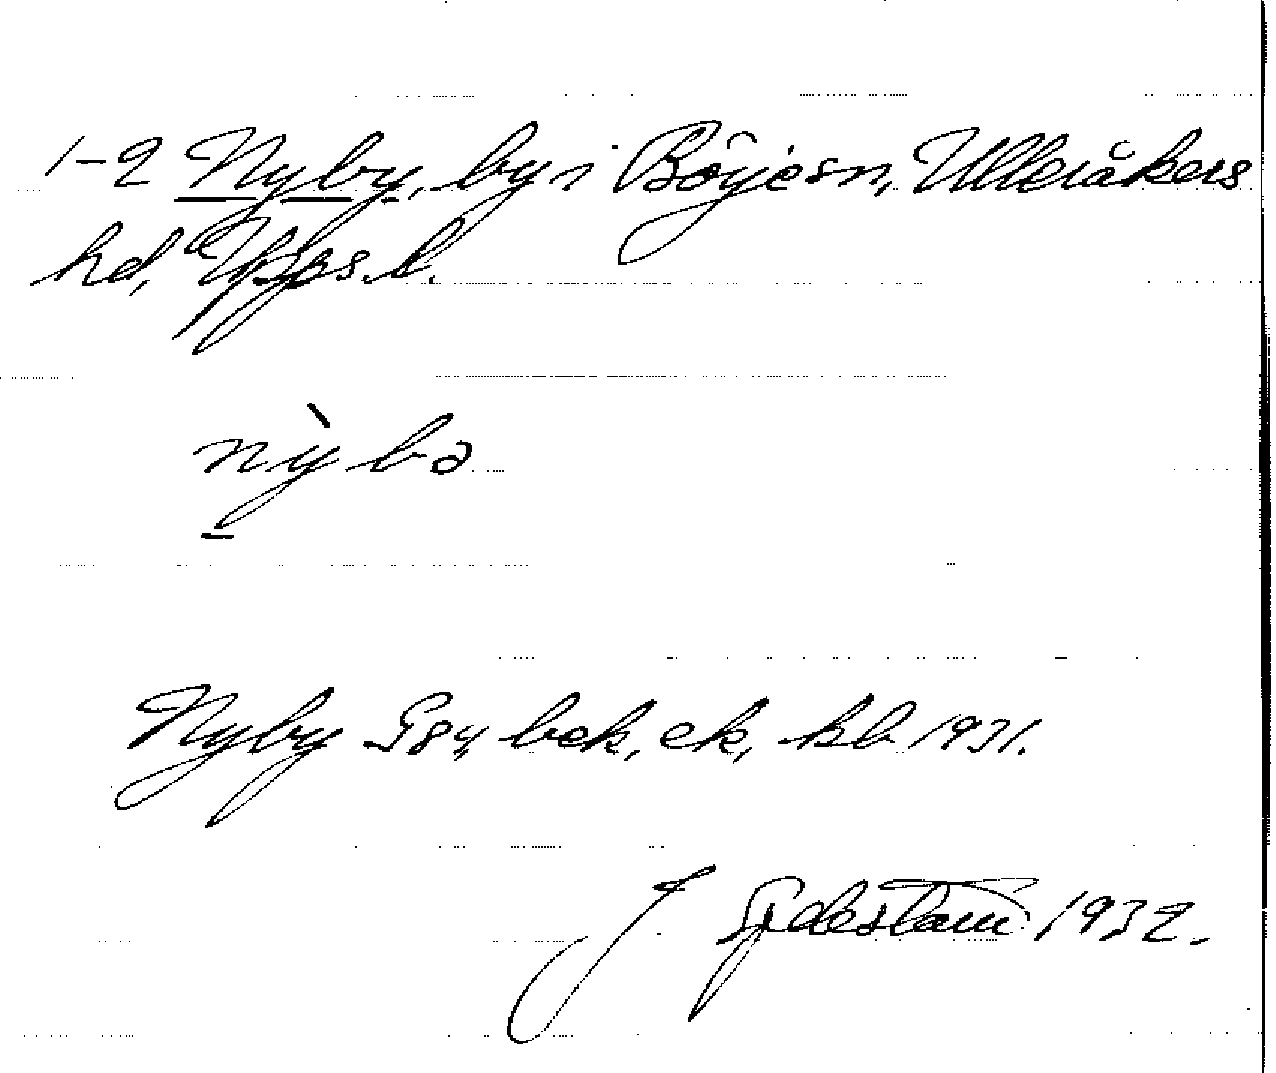 1-2 Nyby, by i Börje sn, Ulleråkers
hd, Upps. l.
nỳbə
Nyby GS 84, bek, ek, kb 1931.
J Sjdestam 1932.